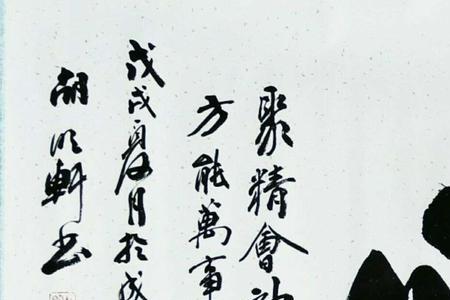 聚精會神
方能萬事
戊戌夏月於成
胡軒书